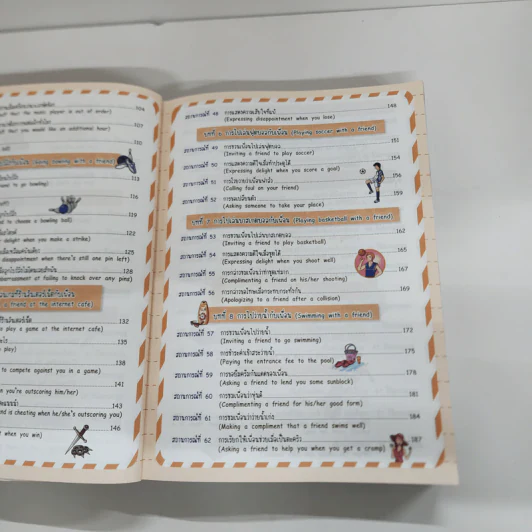 104
107
110
(Going bowling with a friend)
113
d to go bowling)
117
119
d to choose a bowling ball)
122
delight when you make a strike)
125
disappointment when there's still one pin left)
128
at failing to knock over any pins)
a friend at the internet cafe)
132
o play a game at the internet cafe)
135
play)
138
to compete against you in a game)
141
n you're outscoring him/her)
143
d a cheating when he/she's outscoring you)
146
t when you win)
สถานการณ์ที่ 48 การแสดงความเสียใจที่แพ้ 148
(Expressing disappointment when you lose)
บทที่ 6 การไปเล่นฟุตบอลกับเพื่อน (Playing soccer with a friend)
สถานการณ์ที่ 49 การชวนเพื่อนไปเล่นฟุตบอล 151
(Inviting a friend to play soccer)
สถานการณ์ที่ 50 การแสดงความดีใจเมื่อทำประตูได้ 154
(Expressing delight when you score a goal)
สถานการณ์ที่ 51 156
(Calling foul on your friend)
สถานการณ์ที่ 52 การขอเปลี่ยนตัว 159
(Asking someone to take your place)
บทที่ 7 การไปเล่นบาสเกตบอลกับเพื่อน (Playing basketball with a friend)
สถานการณ์ที่ 53 การชวนเพื่อนไปเล่นบาสเกตบอล 162
(Inviting a friend to play basketball)
สถานการณ์ที่ 54 การแสดงความดีใจเมื่อชู้ตได้ 165
(Expressing delight when you shoot well)
สถานการณ์ที่ 55 การกล่าวชมเพื่อนว่าชู้ตเก่งมาก 167
(Complimenting a friend on his/her shooting)
สถานการณ์ที่ 56 การกล่าวขอโทษเมื่อกระแทกกระทั้นกัน 169
(Apologizing to a friend after a collision)
บทที่ 8 การไปว่ายน้ำกับเพื่อน (Swimming with a friend)
สถานการณ์ที่ 57 การชวนเพื่อนไปว่ายน้ำ 172
(Inviting a friend to go swimming)
สถานการณ์ที่ 58 การชำระค่าเข้าสระว่ายน้ำ 175
(Paying the entrance fee to the pool)
สถานการณ์ที่ 59 การขอยืมครีมกันแดดของเพื่อน 178
(Asking a friend to lend you some sunblock)
สถานการณ์ที่ 60 การชมเพื่อนว่าหุ่นดี 181
(Complimenting a friend for his/her good form)
สถานการณ์ที่ 61 การชมเพื่อนว่าว่ายน้ำเก่ง 184
(Making a compliment that a friend swims well)
สถานการณ์ที่ 62 การเรียกให้เพื่อนช่วยเมื่อเป็นตะคริว 187
(Asking a friend to help you when you get a cramp)